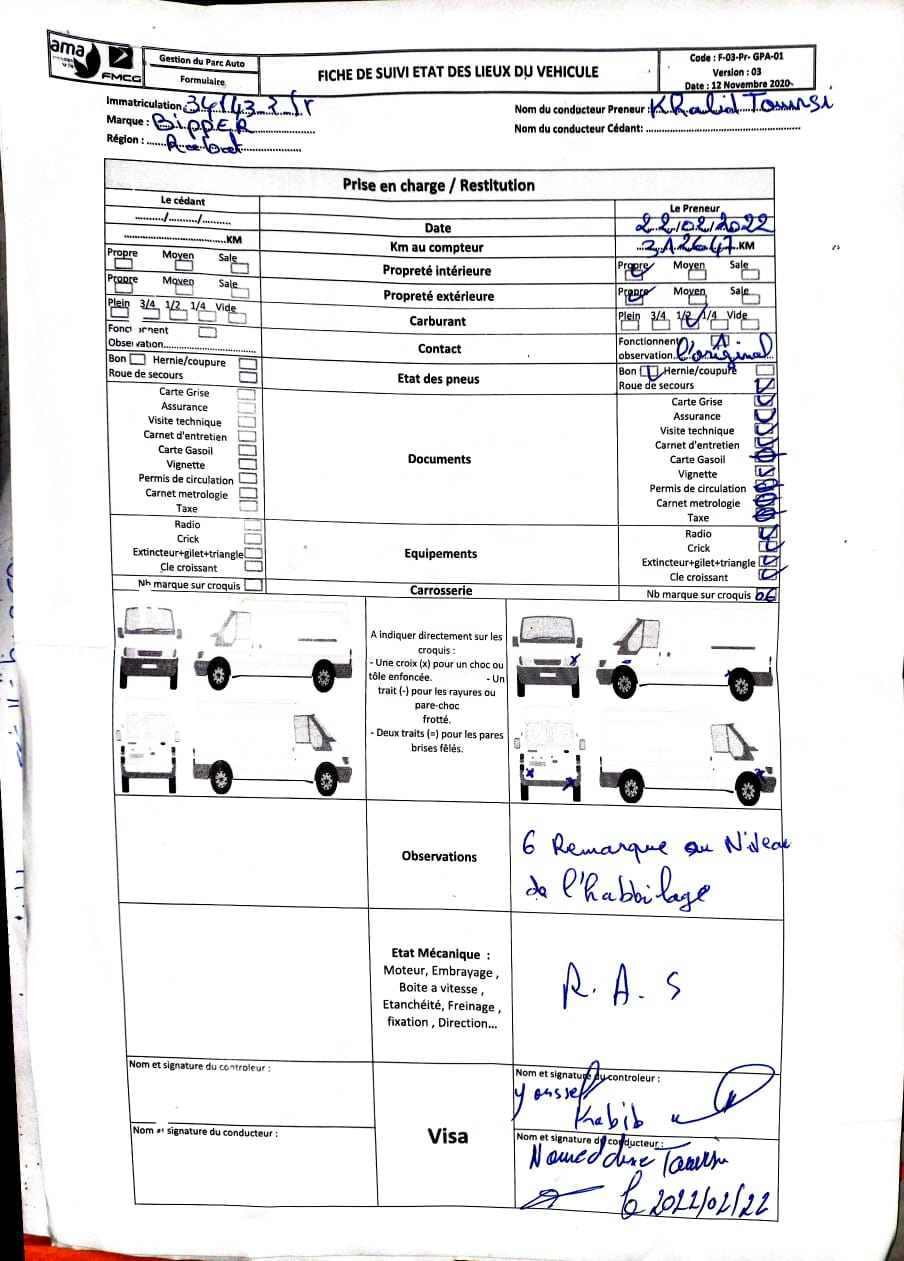 ama
FMCG
Gestion du Parc Auto
Formulaire
FICHE DE SUIVI ETAT DES LIEUX DU VEHICULE
Code : F-03-Pr- GPA-01
Version : 03
Date : 12 Novembre 2020
Immatriculation :
Marque : BippER
Région : Rabat
Nom du conducteur Preneur : KHalid Toumsi
Nom du conducteur Cédant:
Prise en charge / Restitution
Le cédant
Le Preneur
........../........../..........
Date
22/02/2022
KM
Km au compteur
312647 KM
Propre Moyen Sale
Propreté intérieure
Propre Moyen Sale
Propre Moyen Sale
Propreté extérieure
Propre Moyen Sale
Plein 3/4 1/2 1/4 Vide
Carburant
Plein 3/4 1/2 1/4 Vide
Observation
Contact
Fonctionnent A
observation l'original
Bon Hernie/coupure
Roue de secours
Etat des pneus
Bon Hernie/coupure
Roue de secours
Carte Grise
Assurance
Visite technique
Carnet d'entretien
Carte Gasoil
Vignette
Permis de circulation
Carnet metrologie
Taxe
Documents
Carte Grise
Assurance
Visite technique
Carnet d'entretien
Carte Gasoil
Vignette
Permis de circulation
Carnet metrologie
Taxe
Radio
Crick
Extincteur+gilet+triangle
Cle croissant
Equipements
Radio
Crick
Extincteur+gilet+triangle
Cle croissant
Nb marque sur croquis
Carrosserie
Nb marque sur croquis 06
A indiquer directement sur les
croquis :
- Une croix (x) pour un choc ou
tôle enfoncée. - Un
trait (-) pour les rayures ou
pare-choc
frotté.
- Deux traits (=) pour les pares
brises fêlés.
Observations
6 Remarque au Niveau
de l'habbilage
Etat Mécanique :
Moteur, Embrayage ,
Boite a vitesse ,
Etanchéité, Freinage ,
fixation , Direction...
R.A.S
Nom et signature du controleur :
Nom et signature du conducteur :
Visa
Nom et signature du controleur :
Youssef
Habib
Nom et signature du conducteur :
Noureddine
2022/02/22